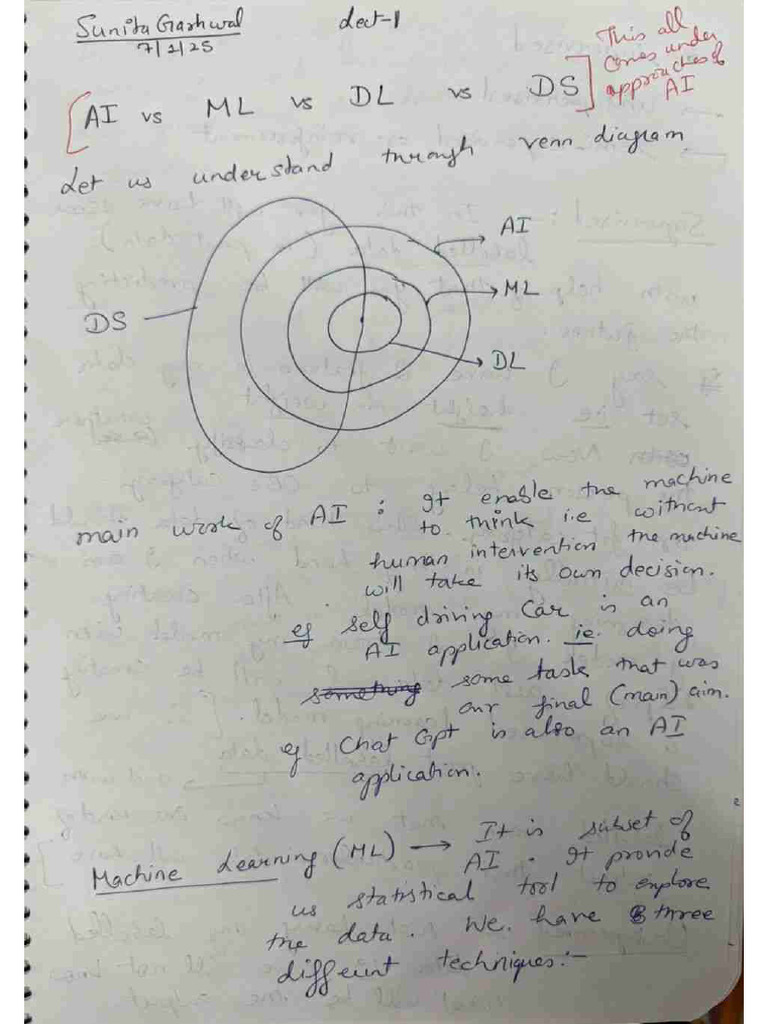 Sunita Gashwal
Lect-1
7/2/25
This all
comes under
approaches of
AI
AI vs ML vs DL vs DS
Let us understand through venn diagram
AI
ML
DS
DL
main work of AI : It enable the machine
to think i.e without
human intervention the machine
will take its own decision.
eg self driving car is an
AI application. ie. doing
something some task that was
our final (main) aim.
eg Chat Gpt is also an AI
application.
Machine Learning (ML) → It is subset of
AI. It provide
us statistical tool to explore
the data. We have three
different techniques:-